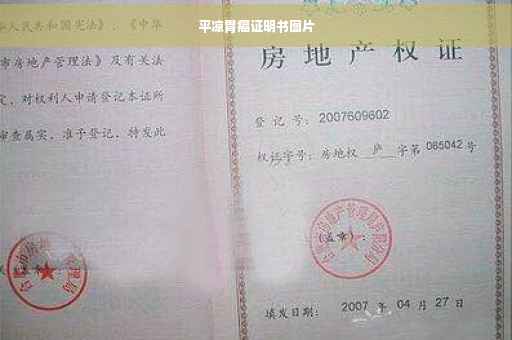 平凉胃癌证明书图片
华人民共和国宪法》、《中华
市房地产管理法》及有关法
定，对权利人申请登记本证所
审查属实，准予登记，特发此
房地产权证
登记号：2007609602
权证字号：房地权 庐 字第 085042 号
(盖章)：
填发日期：2007 年 04 月 27 日